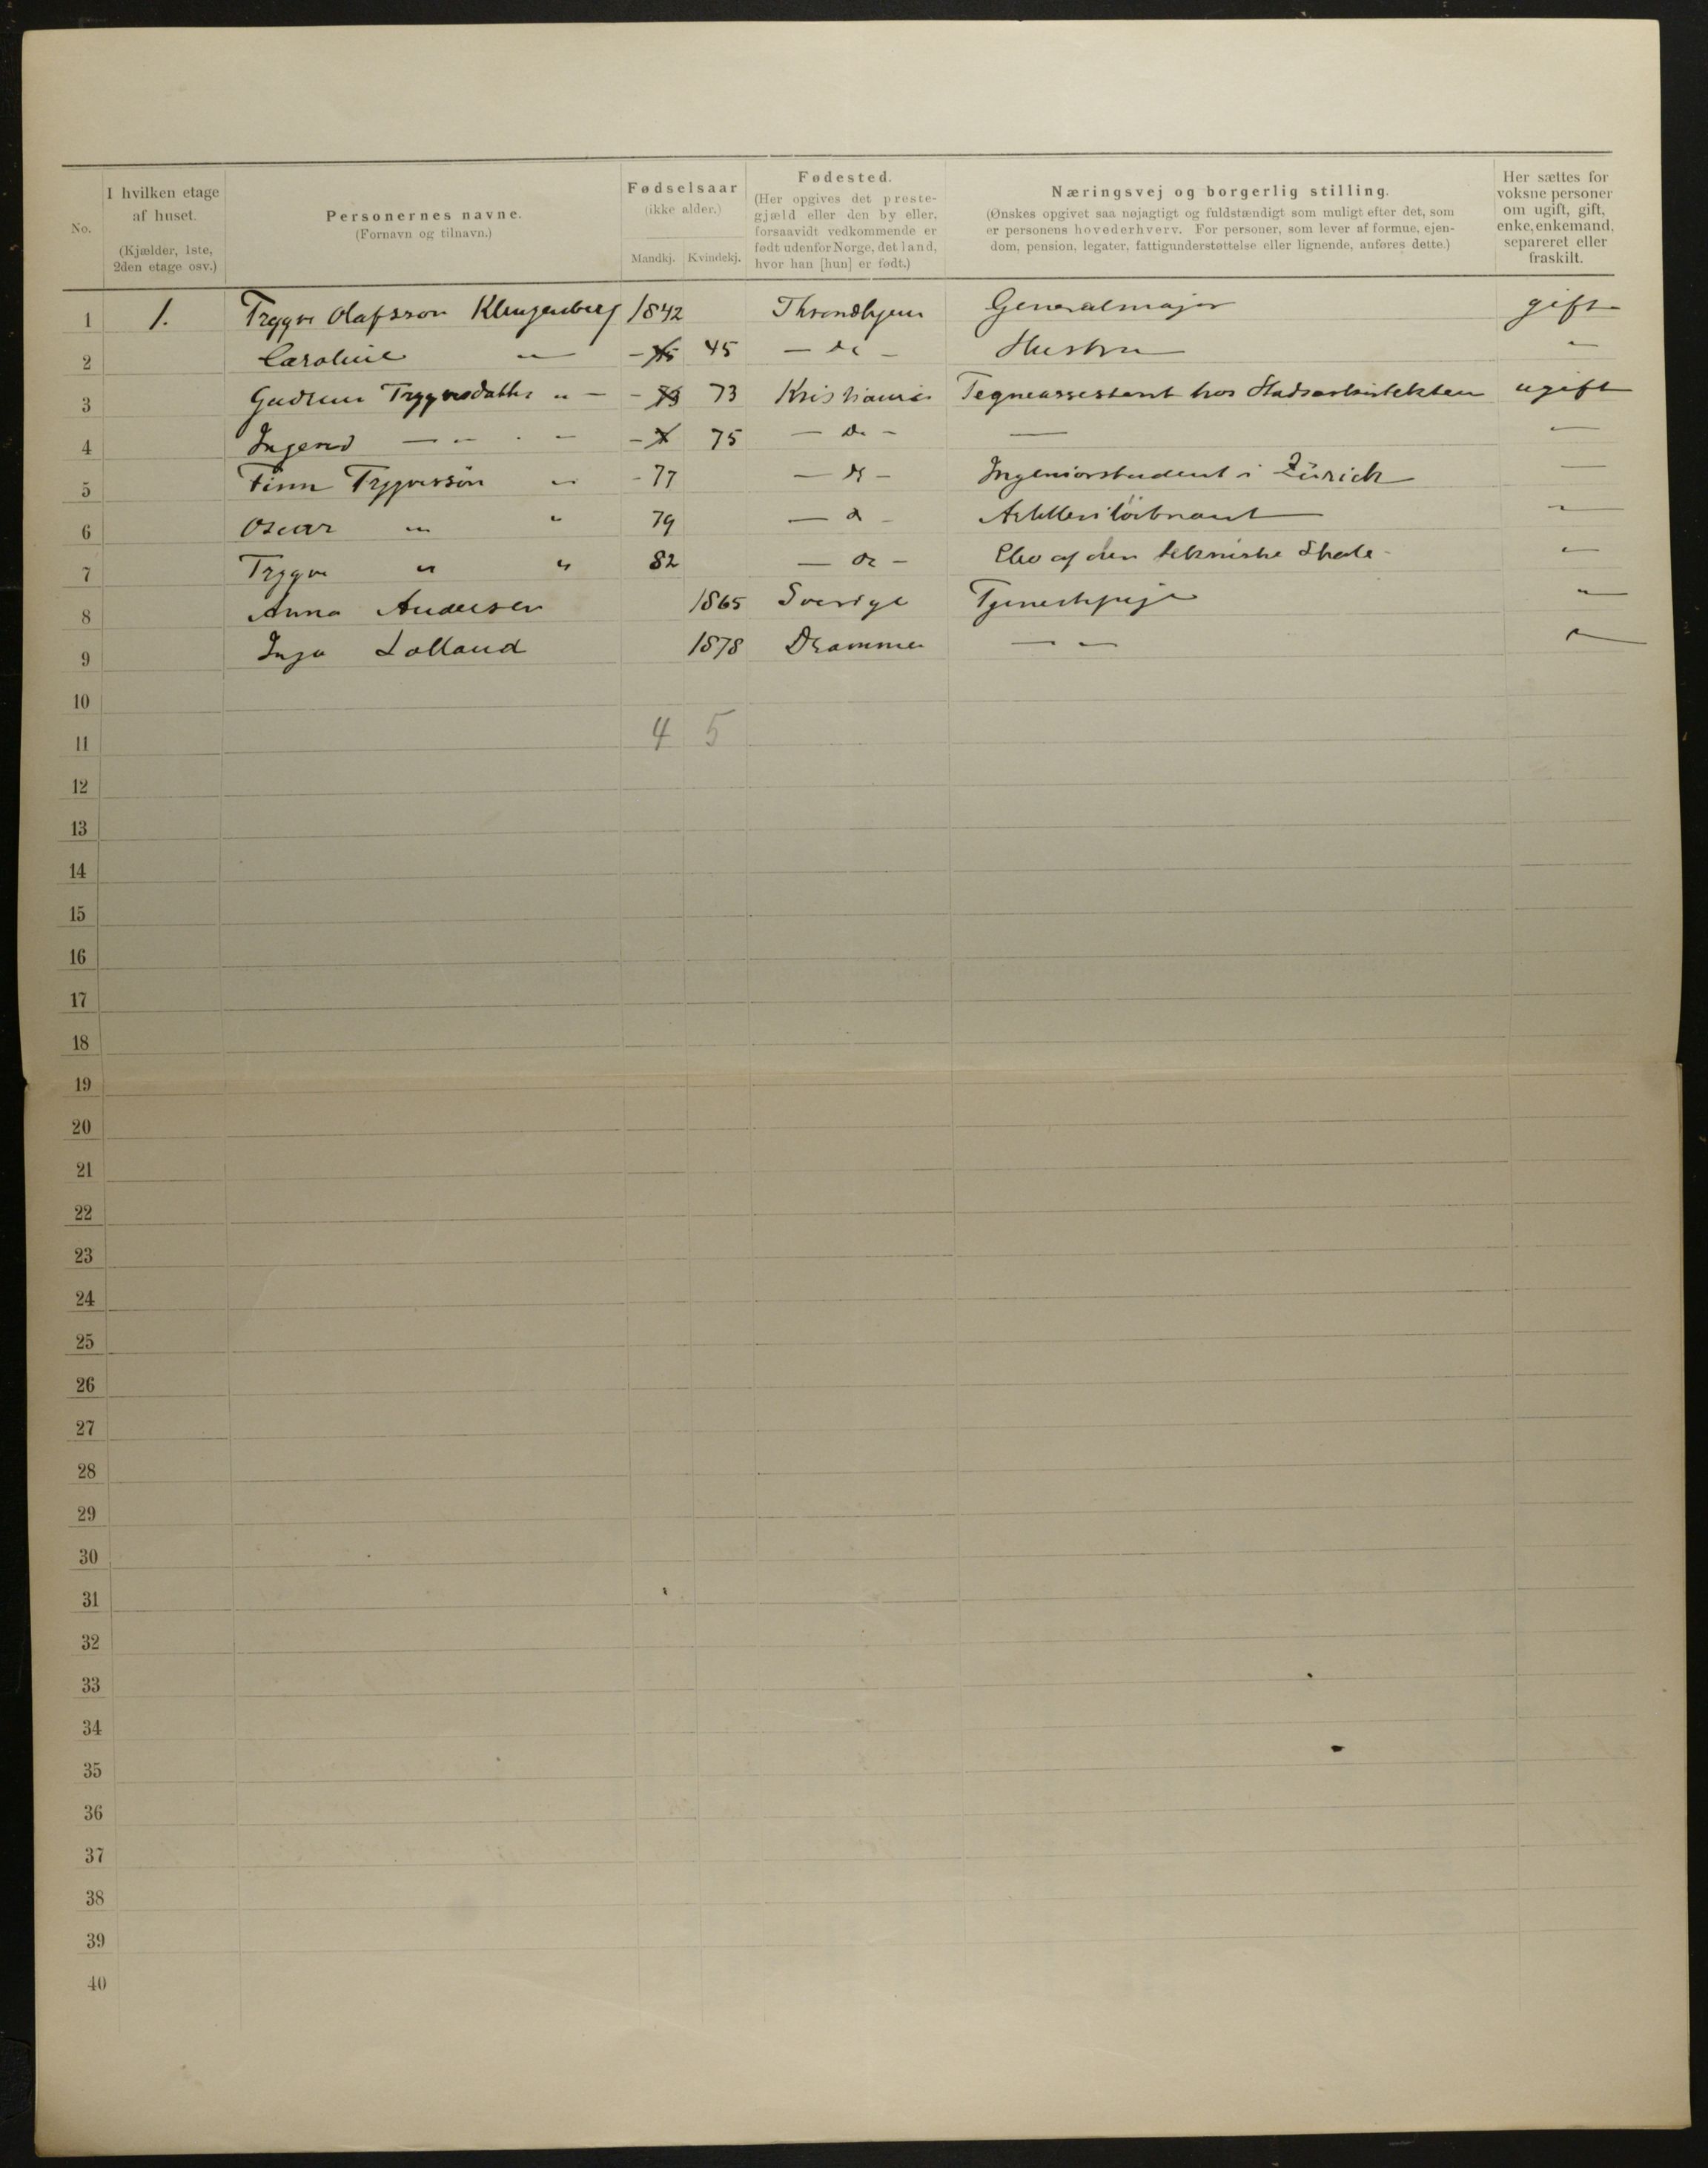 No.
I hvilken etage af huset.
(Kjælder, 1ste, 2den etage osv.)
Personernes navne.
(Fornavn og tilnavn.)
Fødselsaar
(ikke alder.)
Mandkj. Kvindekj.
Fødested.
(Her opgives det prestegjæld eller den by eller, forsaavidt vedkommende er født udenfor Norge, det land, hvor han [hun] er født.)
Næringsvej og borgerlig stilling.
(Ønskes opgivet saa nøjagtigt og fuldstændigt som muligt efter det, som er personens hovederhverv. For personer, som lever af formue, ejendom, pension, legater, fattigunderstøttelse eller lignende, anføres dette.)
Her sættes for voksne personer om ugift, gift, enke, enkemand, separeret eller fraskilt.
1 1. Trygve Olafsson Klingenberg 1842 Throndhjem Generalmajor gift
2 Caroline " 45 — do — Hustru "
3 Gudrun Trygvesdatter " — 73 Kristiania Tegneassistent hos Stadsarkitekten ugift
4 Ingerid — " — " — 75 — do — — —
5 Finn Trygvessøn " - 77 — do — Ingeniørstudent i Zürich —
6 Oscar " " 79 — do — Artilleriløitnant "
7 Trygve " " 82 — do — Elev af den tekniske Skole - "
8 Anna Andersen 1865 Sverige Tjenestepige "
9 Inga Lolland 1878 Drammen — " — "
10
11 4 5
12
13
14
15
16
17
18
19
20
21
22
23
24
25
26
27
28
29
30
31
32
33
34
35
36
37
38
39
40